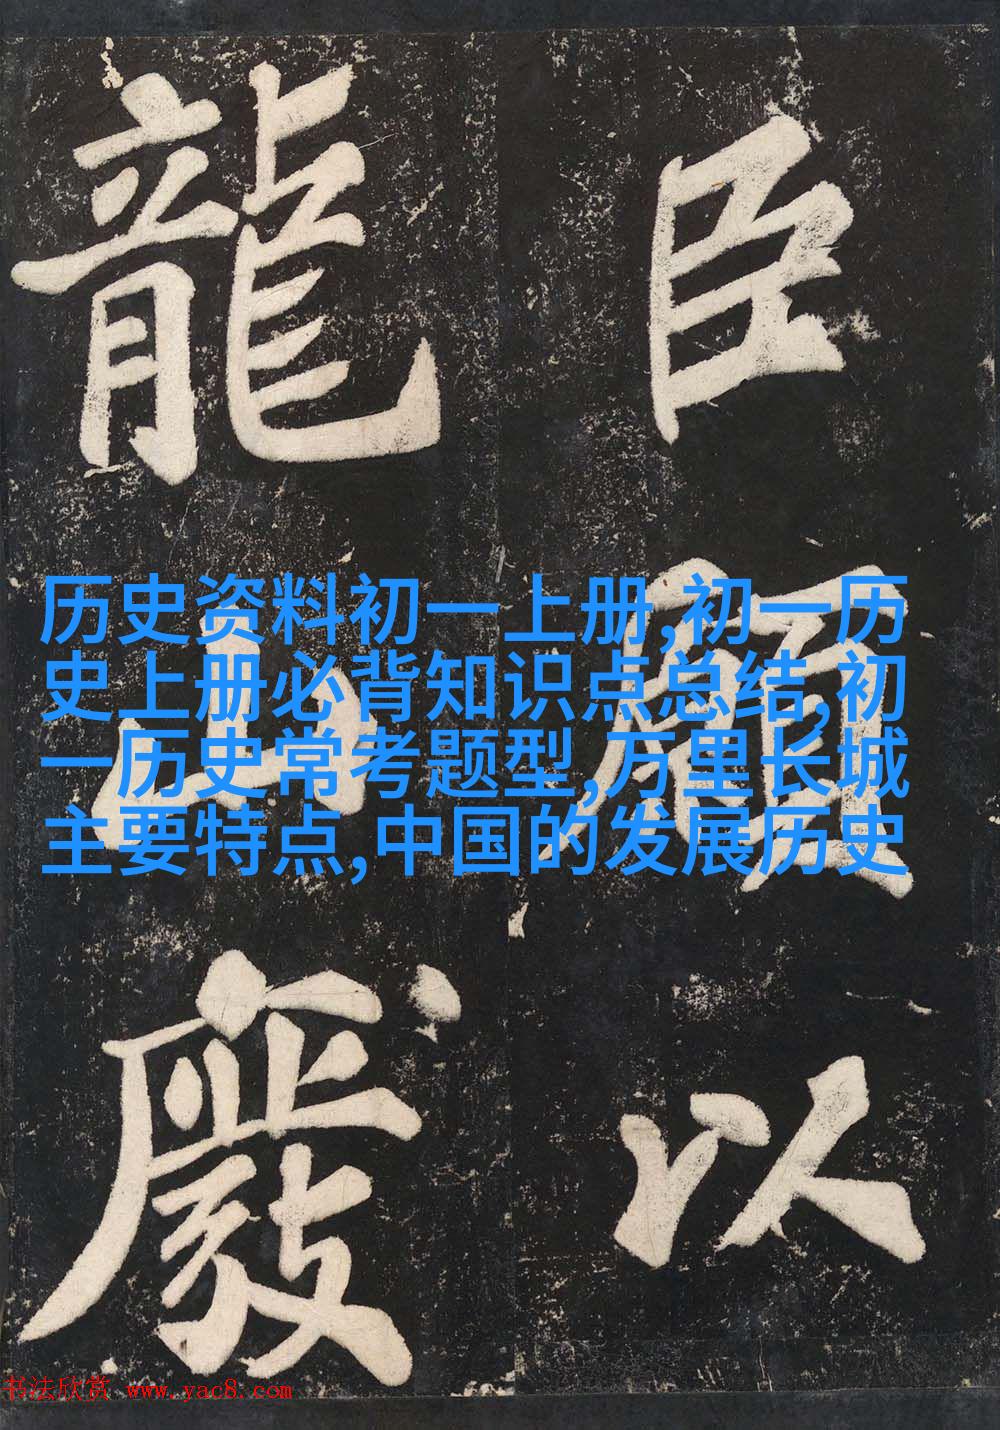 臣願以
龍山
历史资料初一上册,初一历
史上册必背知识点总结,初
一历史常考题型,万里长城
主要特点,中国的发展历史
书法欣赏 www.yac8.com